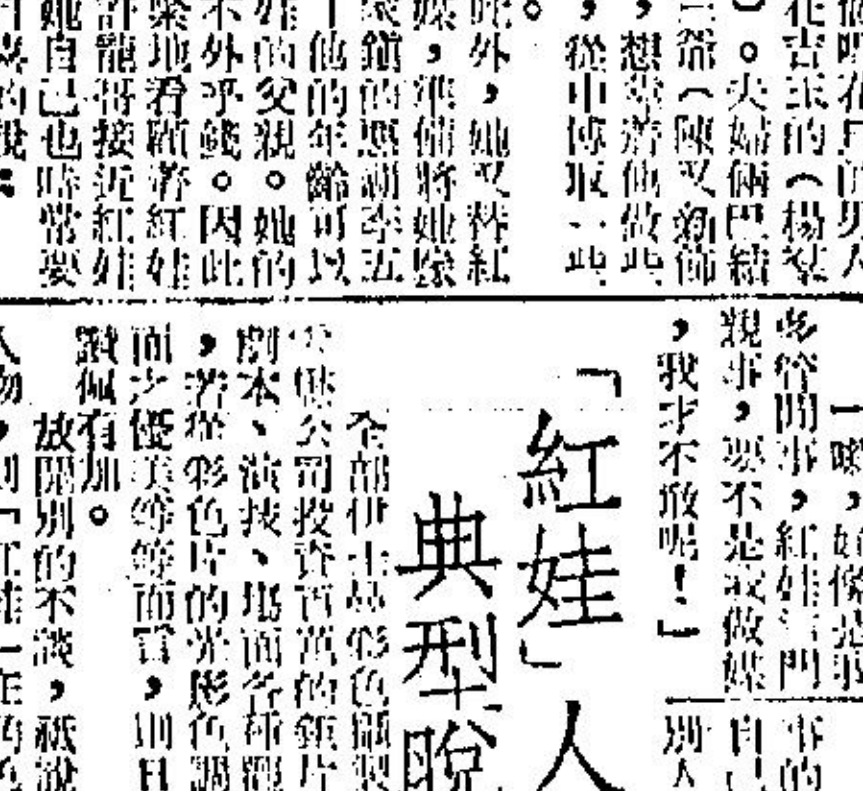 的（楊
。夫婦倆巴結
爺（陳又新飾
，想靠著他做些
，從中博取一些
。
外，她又替紅
媒，準備將她嫁
家鎮的惡霸李五
他的年齡可以
娃的父親。她的
不外乎錢。因此
緊地看顧著紅娃
許龍哥接近紅娃
她自己也時常要
的說：
喲，好像是
多管閒事，紅娃這門
親事，要不是我做媒
，我才不敢呢！」
事的
自己
別人
「紅娃」人
典型脫
全部伊士曼彩色攝製
公司投資百萬的鉅片
劇本、演技、場面各種
，若從彩色片的光彩色調
而之優美等等而言，則且
讚佩有加。
放開別的不談，祇說
人物，則「紅娃